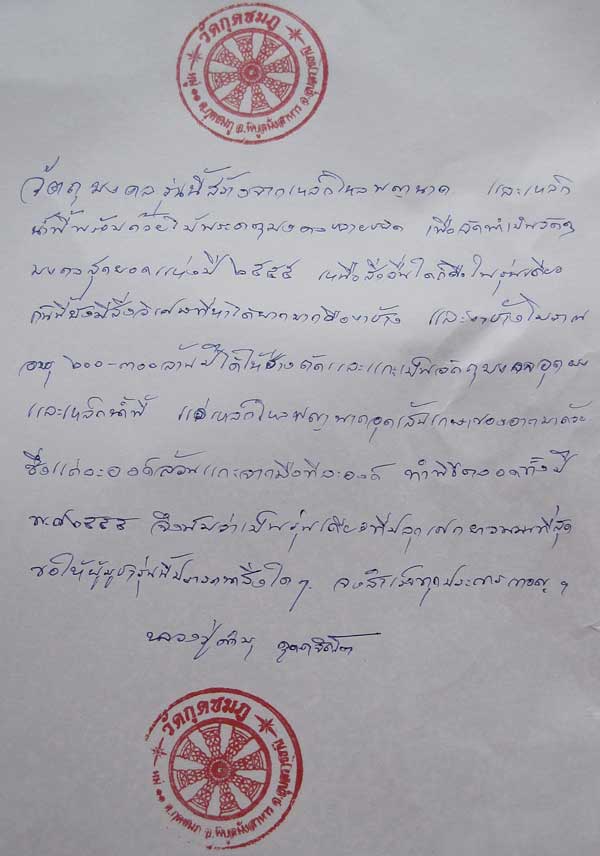 วัดกุดชมภู
หมู่ ๑๑ ต.กุดชมภู อ.พิบูลมังสาหาร จ.อุบลฯ
วัตถุมงคลรุ่นนี้สร้างจากเหล็กไหลพญานาค และเหล็ก
น้ำพี้พร้อมด้วยใบพระธาตุมงคลหลายชนิด เพื่อจัดทำเป็นวัตถุ
มงคลสุดยอดแห่งปี ๒๕๕๕ เหนือสิ่งอื่นใดก็คือในรุ่นเดียว
กันนี้ยังมีสิ่งวิเศษที่หาได้ยากมากคืองาช้าง และงาช้างโบราณ
อายุ ๒๐๐-๓๐๐ล้านปีได้ให้ช่างตัดและแกะเป็นวัตถุมงคลอุดผง
และเหล็กน้ำพี้ แร่เหล็กไหลพญานาคอุดเส้นเกษาของอาตมาด้วย
ซึ่งแต่ละองค์ล้วนแกะจากมือทีละองค์ ทำพิธีตลอดทั้งปี
พ.ศ๒๕๕๕ จึงนับว่าเป็นรุ่นเดียวที่ปลุกเสกยาวนานที่สุด
ขอให้ผู้บูชารุ่นนี้ปรารถนาสิ่งใดๆ จงสำเร็จทุกประการเทอญ ฯ
หลวงปู่คำบุ คุตฺตจิตฺโต
วัดกุดชมภู
หมู่ ๑๑ ต.กุดชมภู อ.พิบูลมังสาหาร จ.อุบลฯ